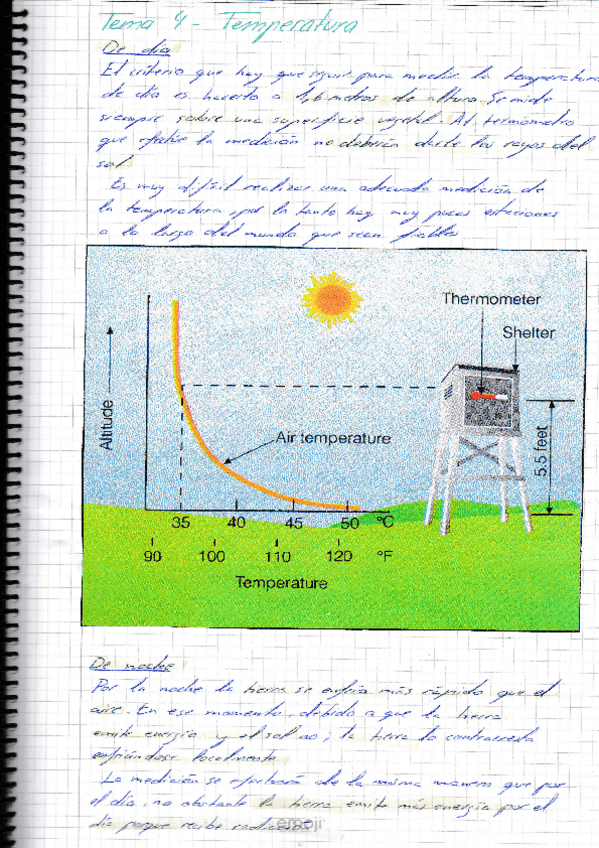 Tema 4 - Temperatura
De día
El criterio que hay que seguir para medir la temperatura
de día es hacerlo a 1,6 metros de altura. Se mide
siempre sobre una superficie vegetal. Al termómetro
que efectúe la medición no debería darle los rayos del
sol.
Es muy difícil realizar una adecuada medición de
la temperatura, por lo tanto hay muy pocas estaciones
a lo largo del mundo que sean fiables
Thermometer
Shelter
Altitude
Air temperature
5.5 feet
35 40 45 50 °C
90 100 110 120 °F
Temperature
De noche
Por la noche la tierra se enfría más rápido que el
aire. En ese momento, debido a que la tierra
emite energía y el sol no; la tierra lo contrarresta
enfriándose localmente.
La medición se efectuará de la misma manera que por
el día, no obstante la tierra emite más energía por el
día porque recibe radiación